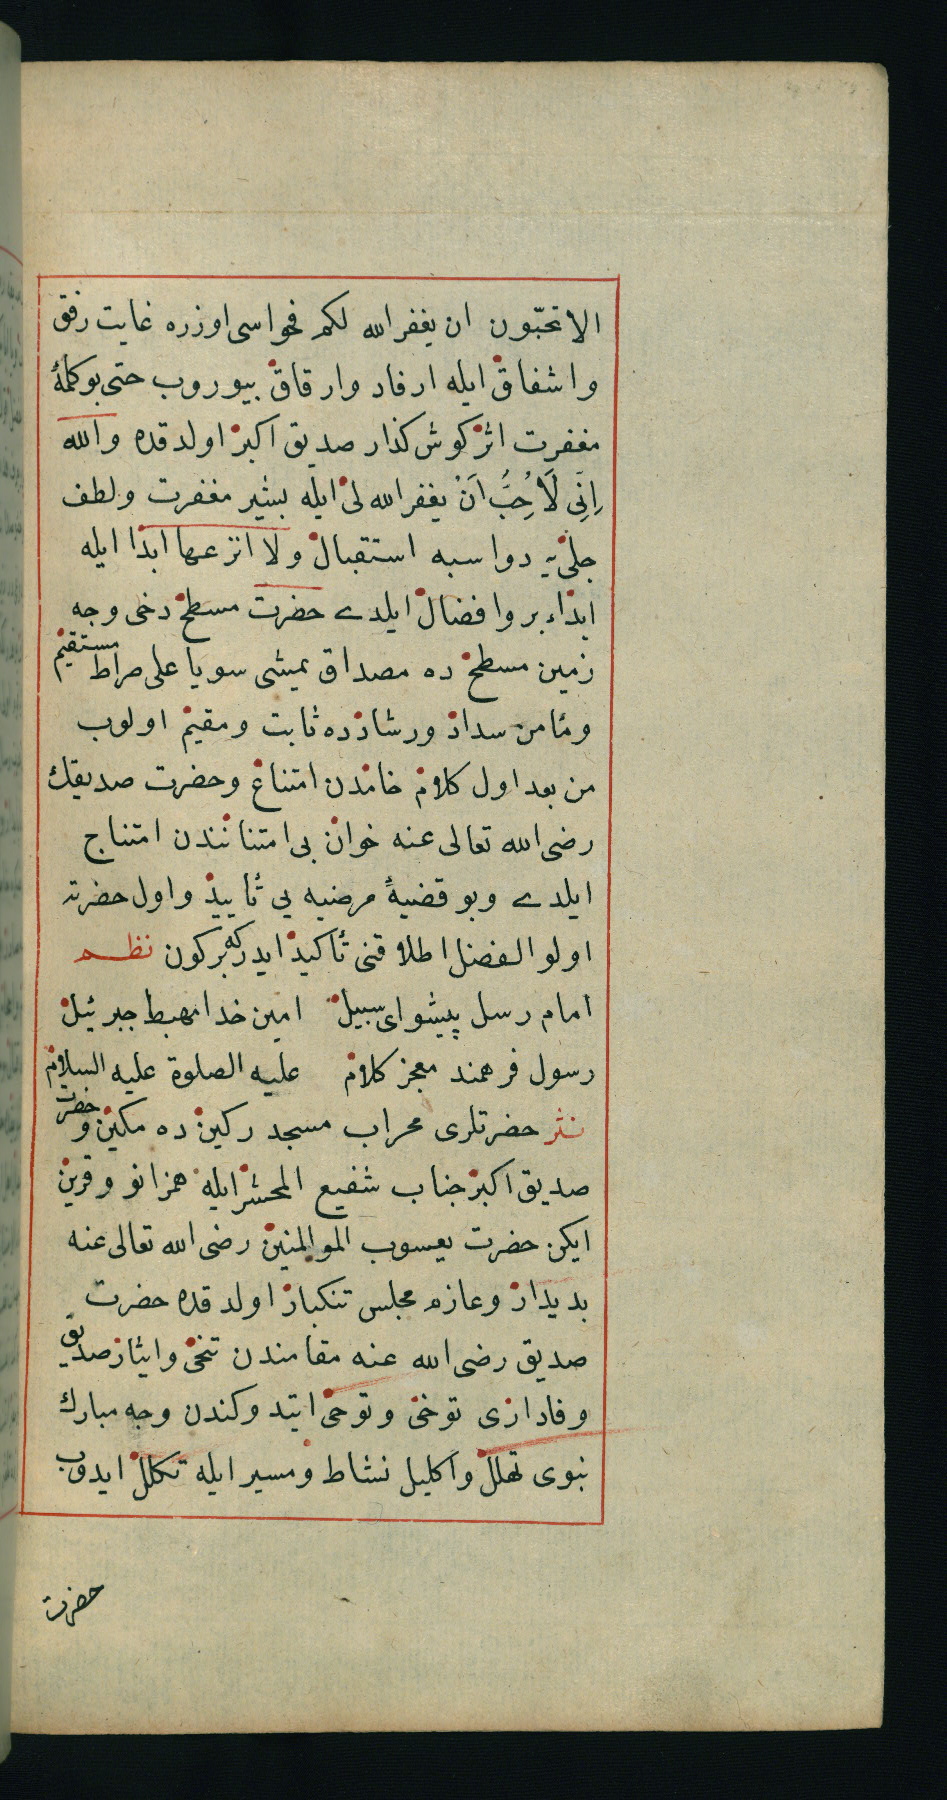 الا تحبّون ان يغفر الله لكم فحواسى اوزره غايت رفق
واشفاق ايله ارفاد وارقاق بيوروب حتى بو كلمهٔ
مغفرت اثر كوش كذار صديق اكبر اولدقده والله
اِنّى لَاُحِبُّ اَنْ يغفر الله لى ايله بشير مغفرت ولطف
جلى يه دواسبه استقبال ولا انزعها ابدا ايله
ابداء بر وافضال ايلدى حضرت مسطح دخى وجه
زمين مسطح ده مصداق يمشى سويا على صراط مستقيم
ومأمن سداد ورشادده ثابت ومقيم اولوب
من بعد اول كلام خامدن امتناع وحضرت صديقك
رضى الله تعالى عنه خوان بى امتنانندن امتناح
ايلدى وبو قضيهٔ مرضيه يى تأييد واول حضرته
اولو الفضل اطلاقنى تأكيد ايدر كه بركون نظم
امام رسل پيشواى سبيل امين خدا مهبط جبرئيل
رسول فرهمند معجز كلام عليه الصلوة عليه السلام
نثر حضرتلرى محراب مسجد ركين ده مكين و حضرت
صديق اكبر جناب شفيع المحشر ايله همزانو وقرين
ايكن حضرت يعسوب المؤمنين رضى الله تعالى عنه
بديدار وعازم مجلس تنكبار اولدقده حضرت
صديق رضى الله عنه مقامندن تنحى وايثار صديق
وفادارى توخى وتوحى ايتدوكندن وجه مبارك
نبوى تهلل واكليل نشاط ومسير ايله تكلل ايدوب
حضرت